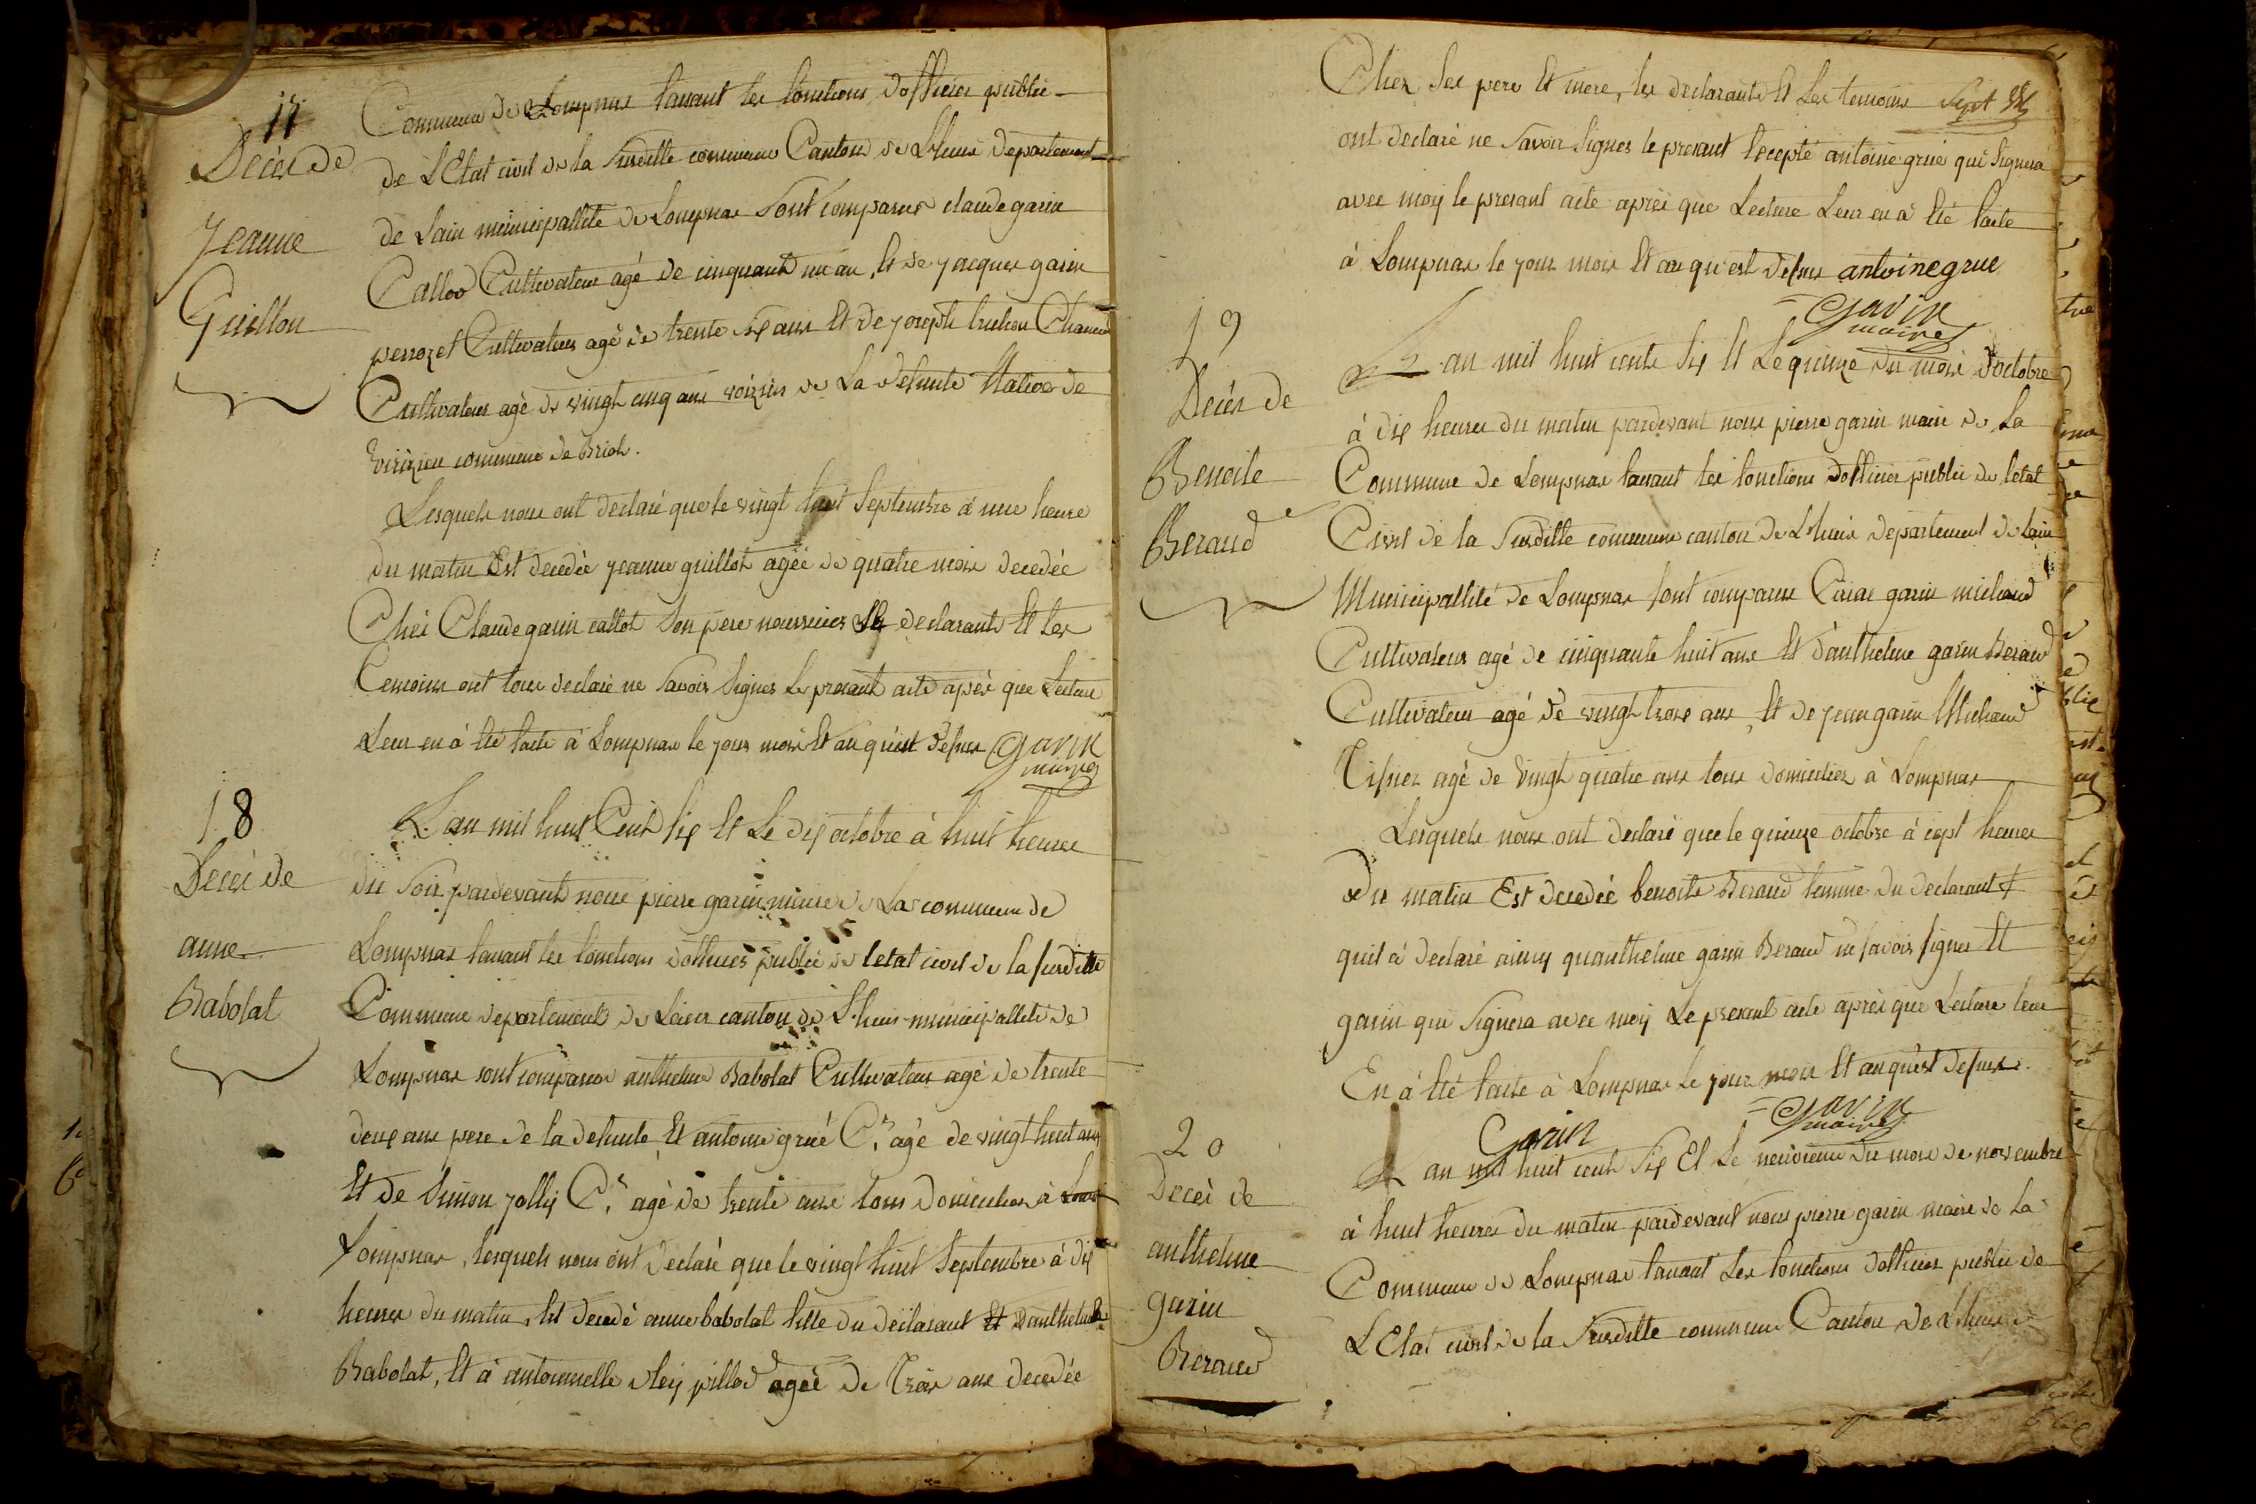 17
Decès de
Jeanne
Guillon
Commune de Lompnas faisant les fonctions d'officier public
de L'Etat civil de la susditte commune Canton de Lhuis departement
de Lain municipallité de Lompnas sont comparus claude garin
Callod Cultivateur agé de cinquante un an, Et de jacques garin
perrozet Cultivateur agé de trente six ans Et de joseph
Cultivateur agé de vingt cinq ans voizin de La defunte Native de
commune de Briord.
Lesquels nous ont declaré que le vingt huit Septembre à une heure
du matin Est decedée jeanne guillot agée de quatre mois decedée
Chés Claude garin callot son pere nourricier declarant Et les
temoins ont tous declaré ne savoir signer Le presant acte après que Lecture
Leur en à été faite à Lompnas le jour mois Et an qu'est dessus Garin
maire
18
Decès de
anne
Babolat
L'an mil huit Cent six Et Le dix octobre à huit heures
du soir pardevant nous pierre garin maire de La commune de
Lompnas faisant les fonctions d'officier public de l'etat civil de la susditte
Commune departement de Lain canton de Lhuis municipallité de
Lompnas sont comparus anthelme Babolat Cultivateur agé de trente
deux ans pere de la defunte, Et antoine grué C.r agé de vingt huit ans
Et de simon jolly C.r agé de trente ans tous domiciliés à
Lompnas, lesquels nous ont declaré que le vingt huit septembre à dix
heures du matin, Est decedé anne babolat fille du declarant Et D'anthelme
Babolat, Et à antoinnette pillod agée de Trois ans decedée
Chez ses pere Et mere, les declarants Et Les temoins
ont declaré ne savoir signer le presant Excepté antoine grué qui signera
avec moy le presant acte après que Lecture Leur en à été faite
à Lompnas le jour mois Et an qu'est dessus antoine grue
Garin
maire
19
Decès de
Benoite
Beraud
L'an mil huit cents six Et Le quinze du mois d'octobre
à dix heures du matin pardevant nous pierre garin maire de La
Commune de Lompnas faisant les fonctions d'officier public de l'etat
Civil de la susditte commune canton de Lhuis departement de Lain
Municipallité de Lompnas sont comparus Cesar garin michaud
Cultivateur agé de cinquante huit ans Et d'anthelme garin Beraud
Cultivateur agé de vingt trois ans, Et de jean garin Michaud
Tissier agé de vingt quatre ans tous domiciliés à Lompnas
Lesquels nous ont declaré que le quinze octobre à sept heures
Du matin Est decedée benoite Beraud femme du declarant
quil à declaré ainsy qu'anthelme garin Beraud ne savoir signer Et
garin qui signera avec moy Le presant acte après que Lecture leur
En à été faite à Lompnas le jour mois Et an qu'est dessus.
Garin
Garin
maire
20
Decès de
anthelme
garin
Beraud
L'an mil huit cents six Et Le neuvieme du mois de novembre
à huit heures du matin pardevant nous pierre garin maire de La
Commune de Lompnas faisant Les fonctions d'officier public de
L'Etat civil de la susditte commune Canton de Lhuis